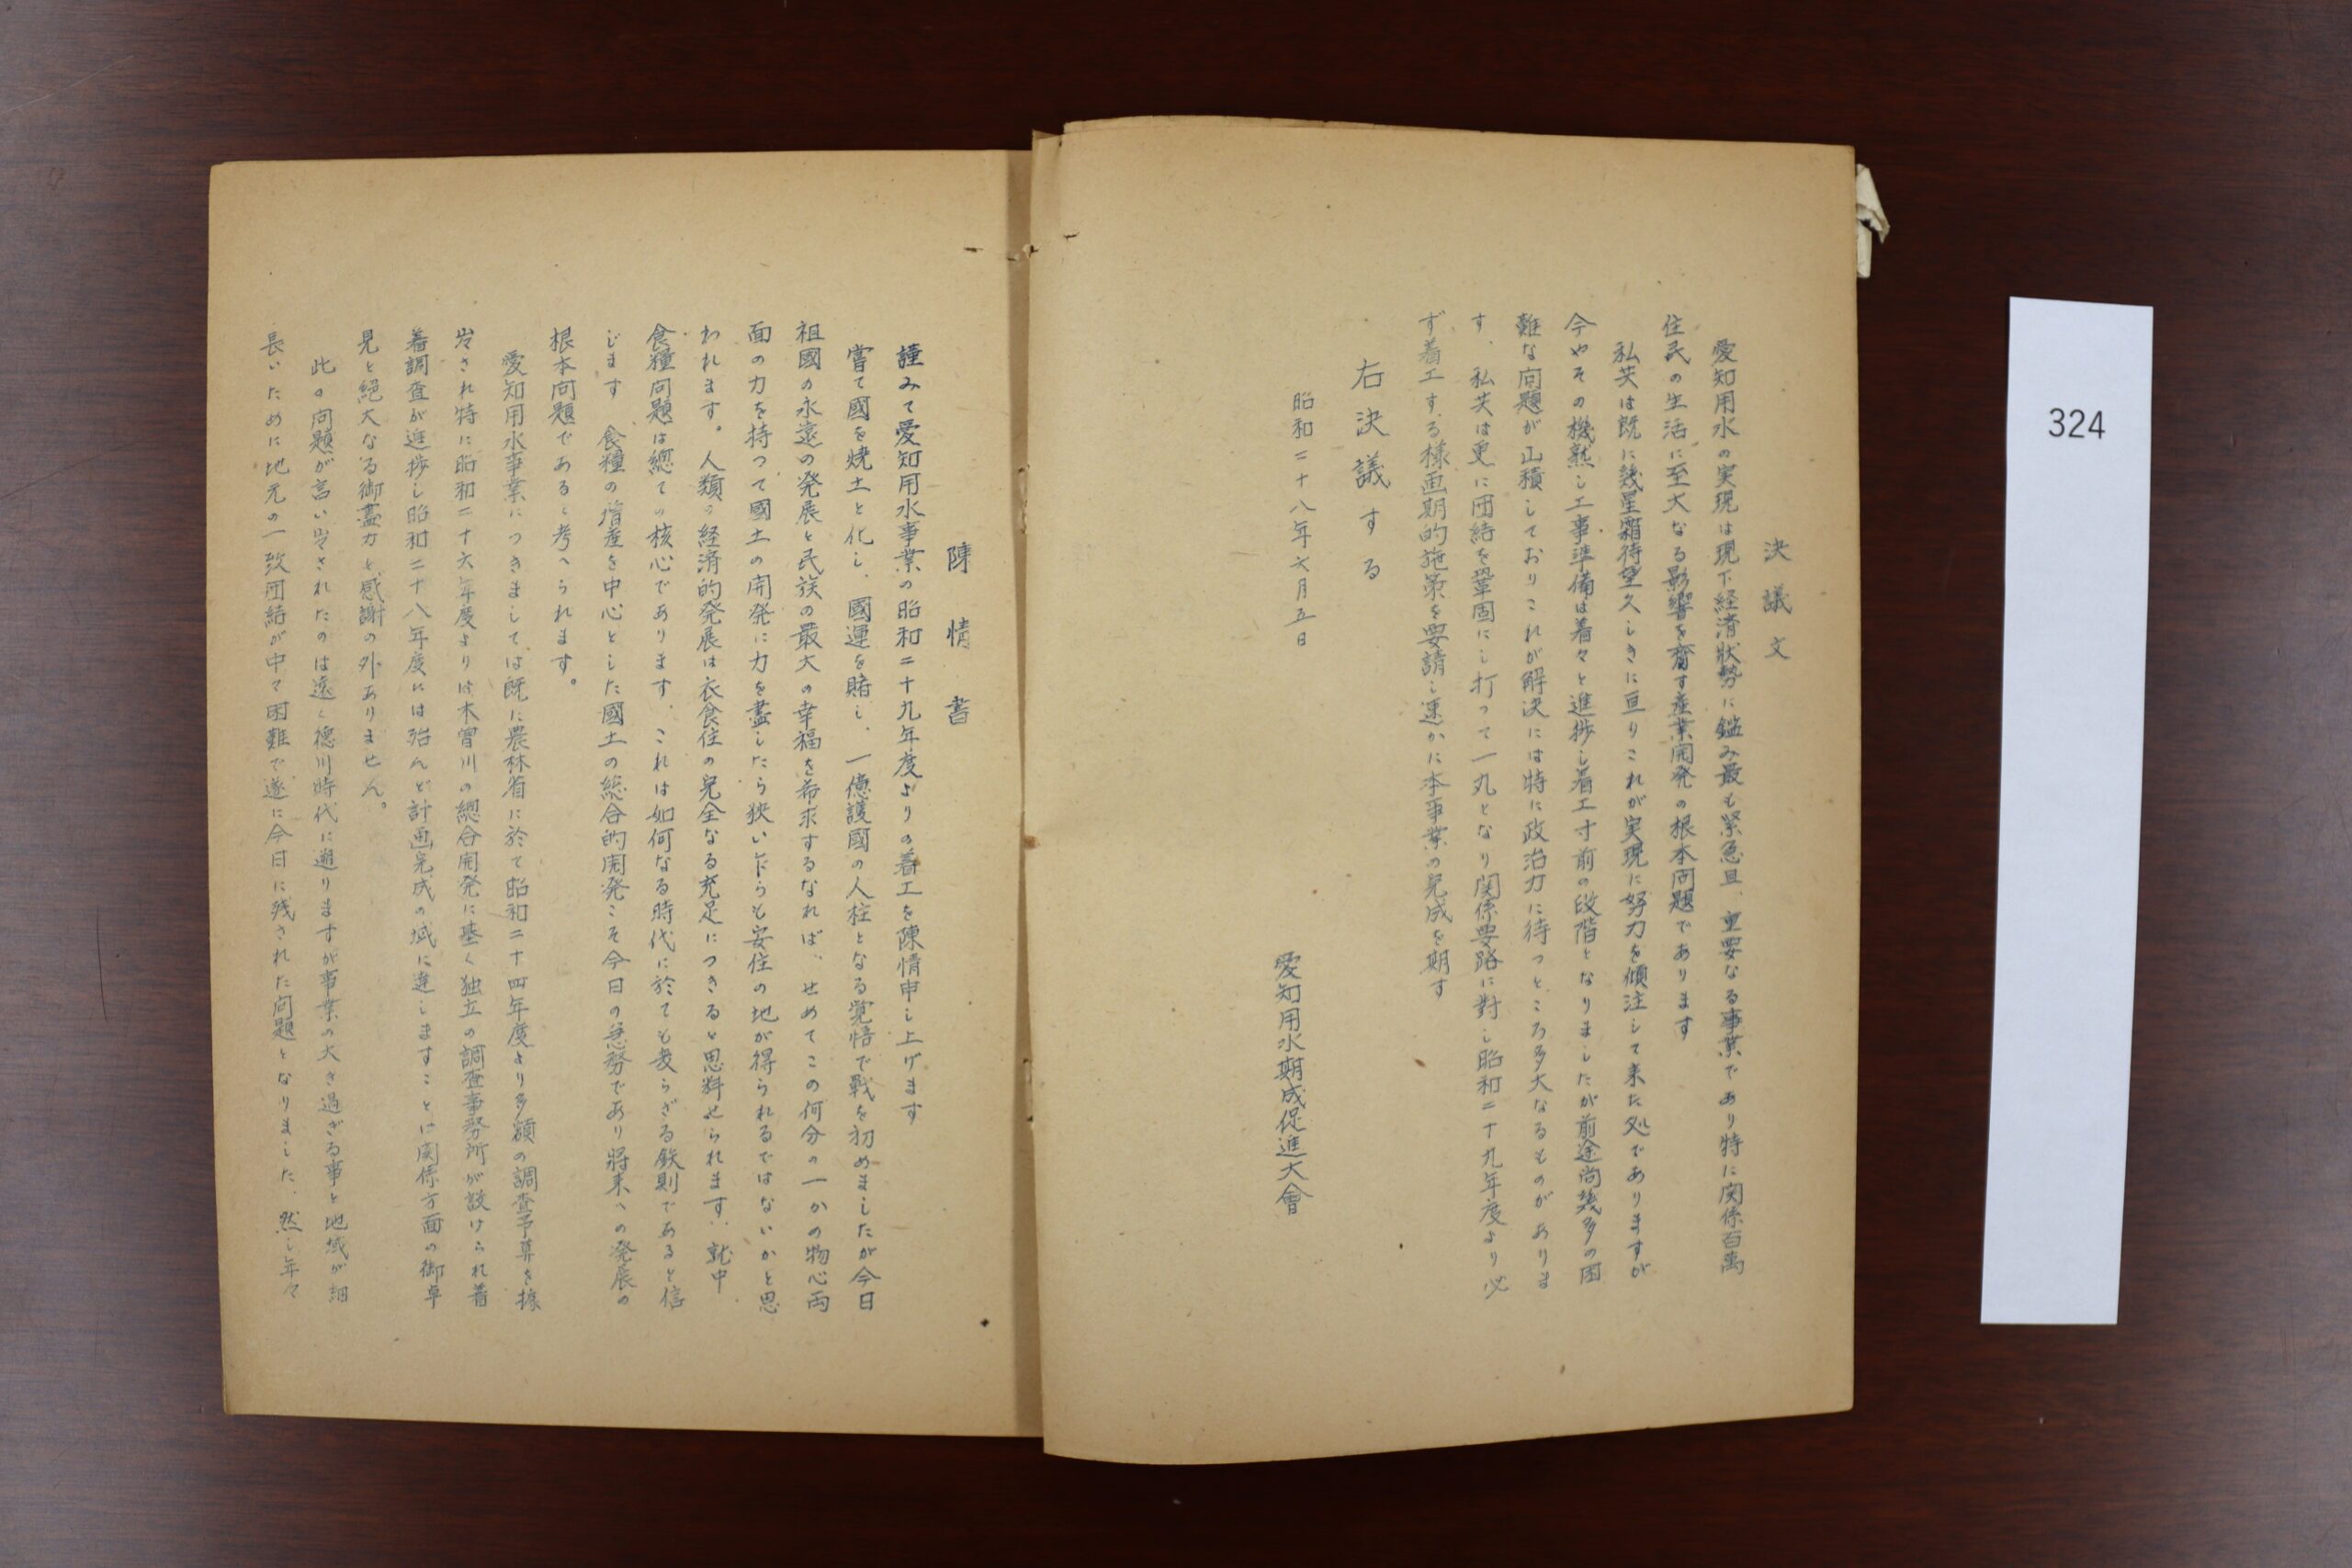 決議文
愛知用水の実現は現下経済狀勢に鑑み最も緊急且、重要なる事業であり特に関係百萬
住民の生活に至大なる影響を齎す産業開発の根本问題であります
私芺は既に幾星霜待望久しきに亘りこれが実現に努力を傾注して来た処でありますが
今やその機熟し工事準備は着々と進捗し着工寸前の段階となりましたが前途尚幾多の困
難な问題が山積しておりこれが解決には特に政治力に待つところ多大なるものがありま
す、私芺は更に団結を鞏固にし打つて一丸となり関係要路に對し昭和二十九年度より必
ず着工する様画期的施策を要請し速かに本事業の完成を期す
右決議する
昭和二十八年六月五日
愛知用水期成促進大會
陳情書
謹みて愛知用水事業の昭和二十九年度よりの着工を陳情申し上げます
嘗て國を焼土と化し、國運を賭し、一億護國の人柱となる覚悟で戰を初めましたが今日
祖國の永遠の発展と民族の最大の幸福を希求するなれば、せめてこの何分の一かの物心両
面の力を持つて國土の開発に力を盡したら狭い乍らも安住の地が得られるではないかと思
われます。人類の経済的発展は衣食住の完全なる充足につきると思料せられます、就中
食糧问題は總ての核心であります、これは如何なる時代に於ても変らざる鉄則であると信
じます 食糧の増産を中心とした國土の総合的開発こそ今日の急務であり將来への発展の
根本问題であると考へられます。
愛知用水事業につきましては既に農林省に於て昭和二十四年度より多額の調査予算を投
出され特に昭和二十六年度よりは木曽川の總合開発に基く独立の調査事務所が設けられ着
着調査が進捗し昭和二十八年度には殆んど計画完成の域に達しますことは関係方面の御卓
見と絶大なる御盡力と感謝の外ありません。
此の问題が言い出されたのは遠く徳川時代に遡りますが事業の大き過ぎる事と地域が細
長いために地元の一致団結が中々困難で遂に今日に残された问題となりました、然し年々
324